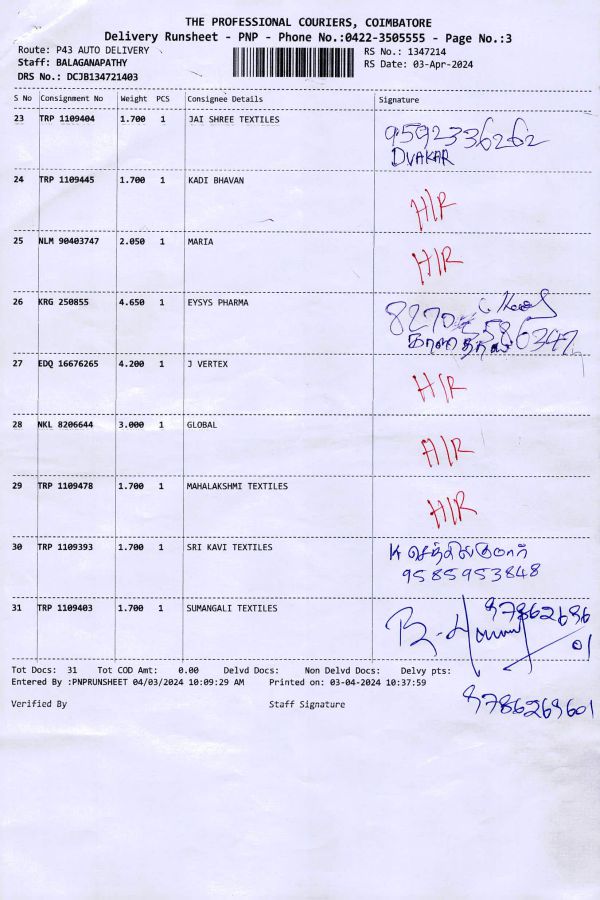 THE PROFESSIONAL COURIERS, COIMBATORE
Delivery Runsheet - PNP - Phone No.:0422-3505555 - Page No.:3
Route: P43 AUTO DELIVERY RS No.: 1347214
Staff: BALAGANAPATHY RS Date: 03-Apr-2024
DRS No.: DCJB134721403
S No Consignment No Weight PCS Consignee Details Signature
23 TRP 1109404 1.700 1 JAI SHREE TEXTILES 9592336262
DVAKAR
24 TRP 1109445 1.700 1 KADI BHAVAN H/R
25 NLM 90403747 2.050 1 MARIA H/R
26 KRG 250855 4.650 1 EYSYS PHARMA
27 EDQ 16676265 4.200 1 J VERTEX H/R
28 NKL 8206644 3.000 1 GLOBAL H/R
29 TRP 1109478 1.700 1 MAHALAKSHMI TEXTILES H/R
30 TRP 1109393 1.700 1 SRI KAVI TEXTILES K செந்தில்குமார்
9585953848
31 TRP 1109403 1.700 1 SUMANGALI TEXTILES
Tot Docs: 31 Tot COD Amt: 0.00 Delvd Docs: Non Delvd Docs: Delvy pts:
Entered By :PNPRUNSHEET 04/03/2024 10:09:29 AM Printed on: 03-04-2024 10:37:59
Verified By Staff Signature 9786269601